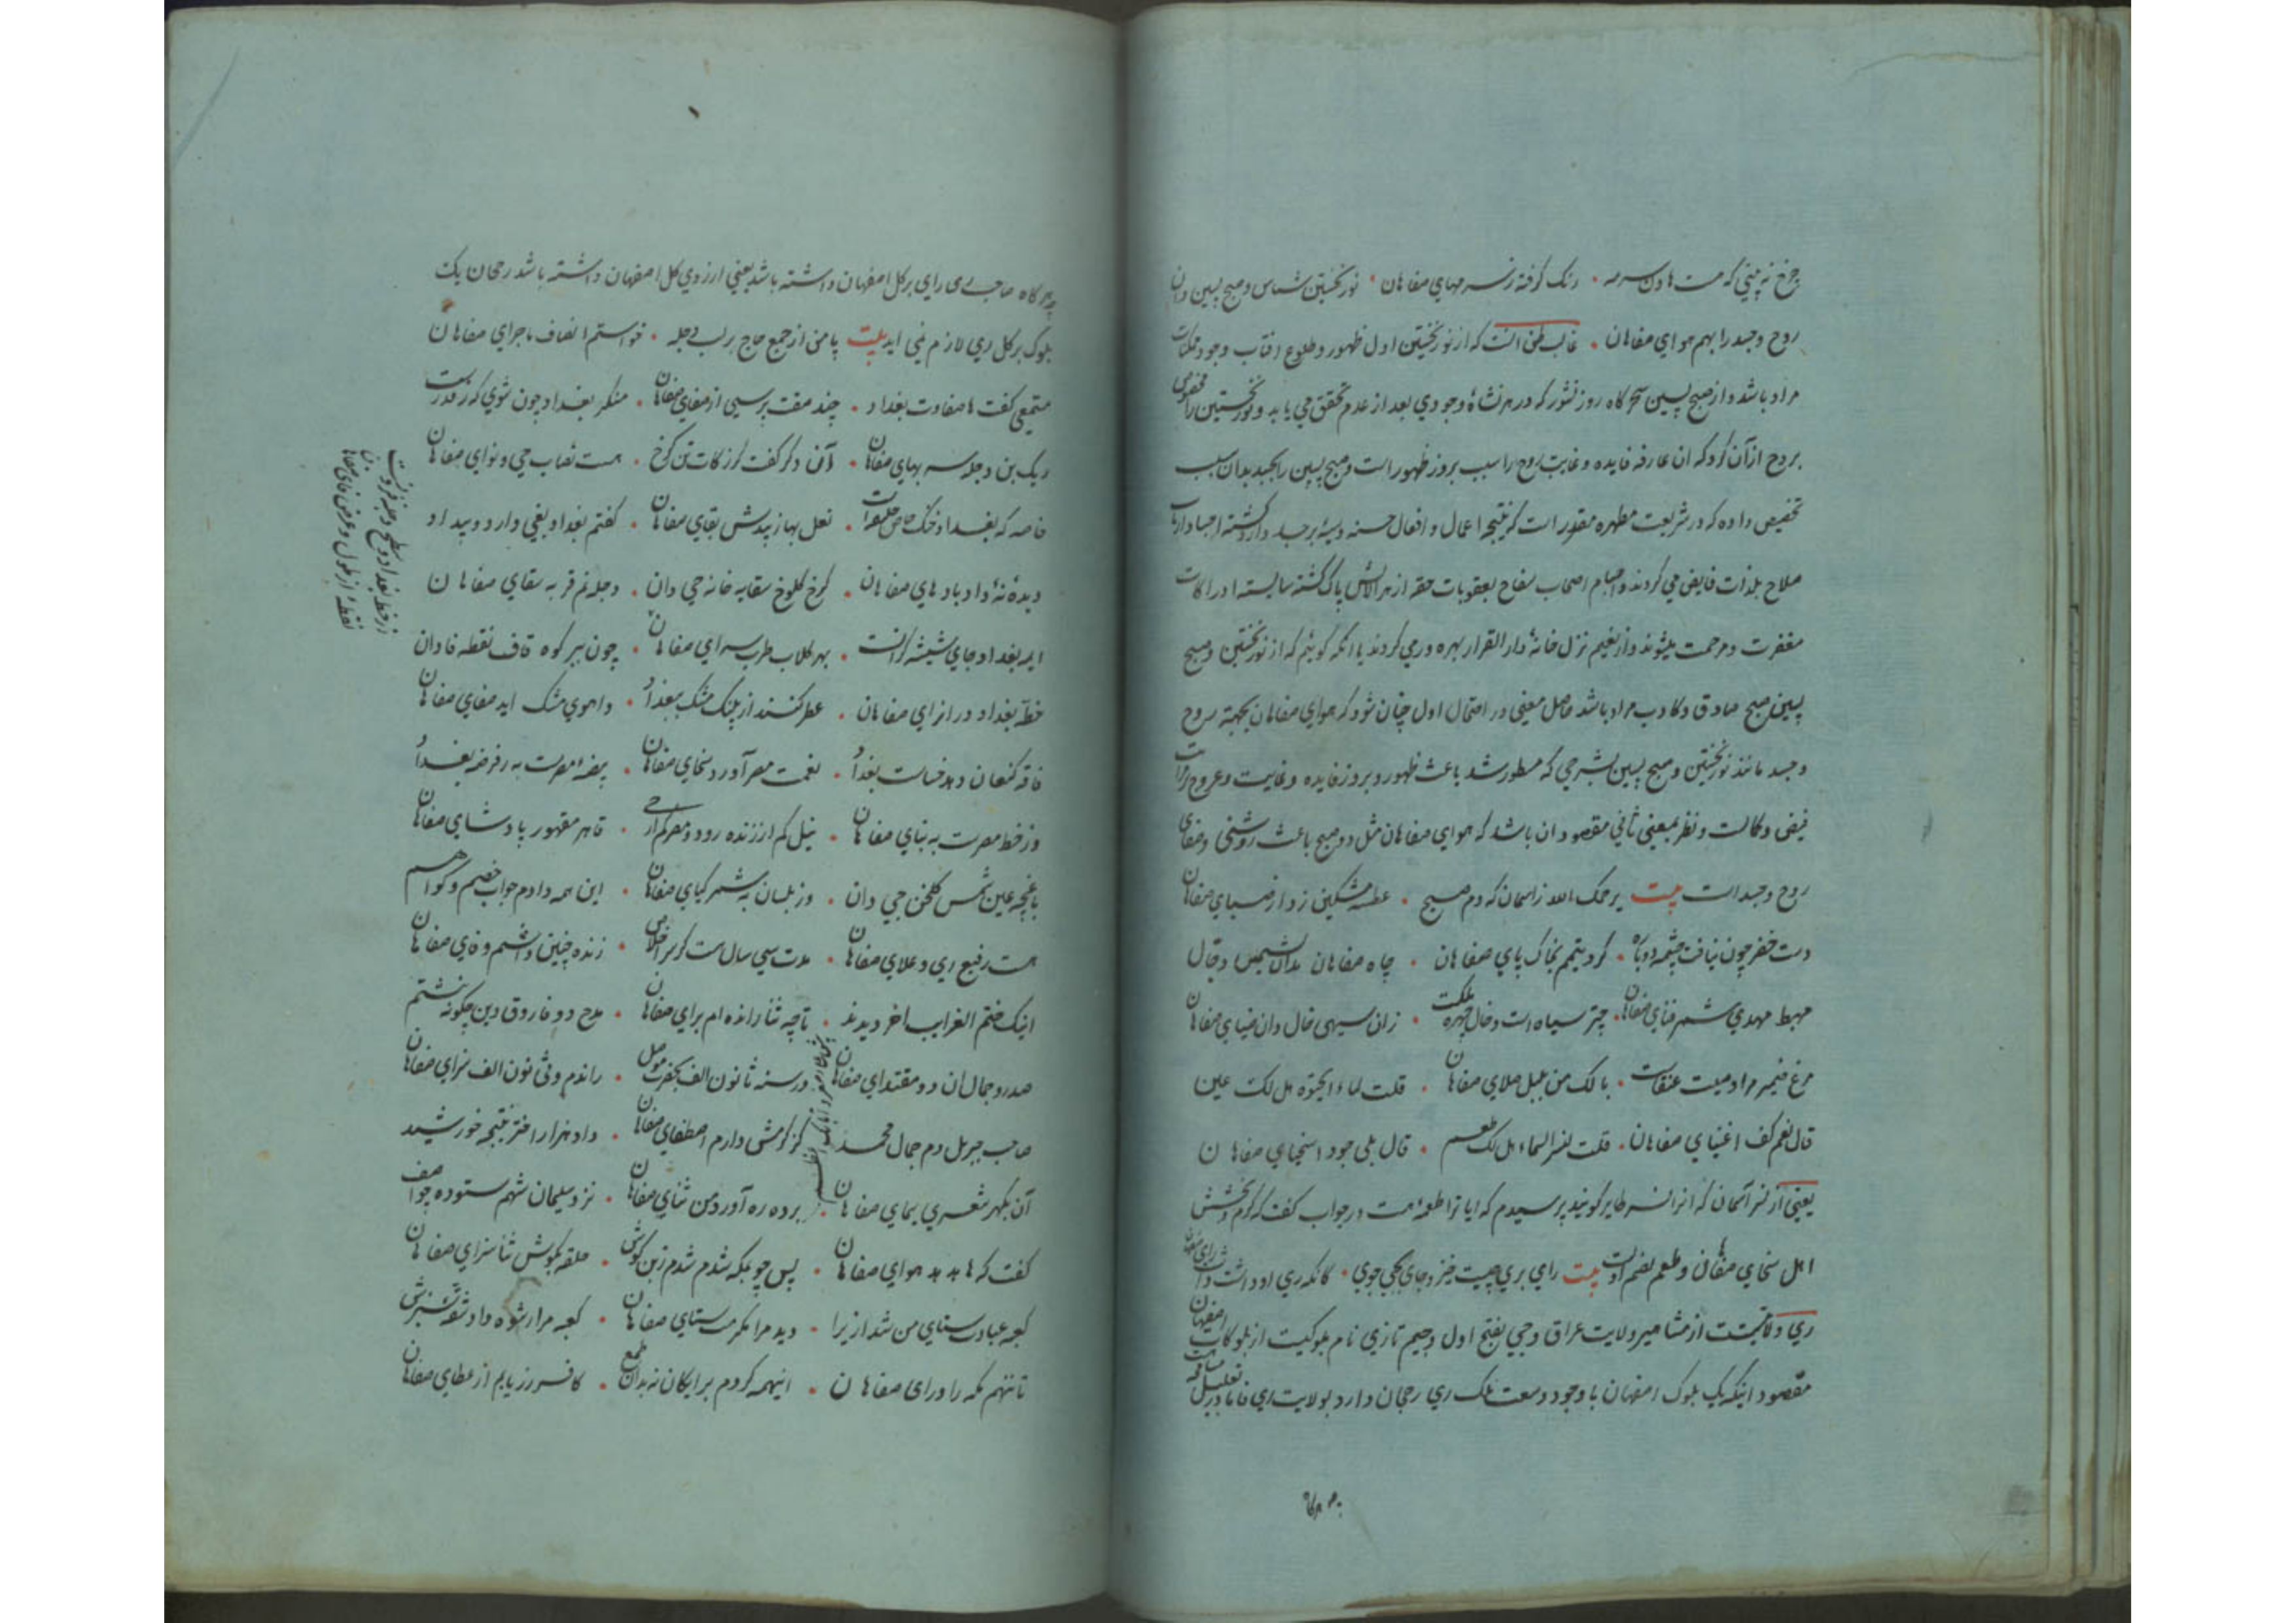 چرخ نه بینی که هست هاون سرمه · رنک کرفته ز سرمهای صفاهان · نور نخستین شناس و صبح پسین دان
روح و جسد را بهم هوای صفاهان · غالب ظن انست که از نور نخستین اول ظهور و طلوع افتاب وجود ممکنات
مراد باشد و از صبح پسین سحرکاه روز نشور که در هر نشاه وجودی بعد از عدم تحقق می یابد و نور نخستین را مخصوص
بروح از آن کرد که ان عارفه فایده و غایت روح را سبب بروز ظهور است و صبح پسین را بجسد بدان سبب
تخصیص داده که در شریعت مطهره مقرر است که نتیجه اعمال و افعال حسنه و سیئه بر جسد وارد کشته اجساد ارباب
صلاح بلذات فایض می کردند و اجسام اصحاب سفاح بعقوبات حقه از هر الایش پاک کشته شایسته ادراکات
مغفرت و مرحمت میشوند و از نعیم نزل خانه دار القرار بهره ور می کردند یا انکه کوئیم که از نور نخستین و صبح
پسین صبح صادق و کاذب مراد باشد حاصل معنی در احتمال اول چنان شود که هوای صفاهان بجهة روح
و جسد مانند نور نخستین و صبح پسین بشرحی که مسطور شد باعث ظهور و بروز فایده و غایت و عروج
فیض و کمالت و نظر بمعنی ثانی مقصود ان باشد که هوای صفاهان مثل دو صبح باعث روشنی و صفای
روح و جسد است بیت یرحمک الله زاسمان که دم صبح · عطسه مشکین زد از صبای صفاهان
دست خضر چون نیافت چشمه دوباره · کرد تیمم بخاک پای صفاهان · چاه صفاهان مدان نشیمن دجال
مهبط مهدی شمر فنای صفاهان · چتر سیاه است و خال چهره ملکت · زان سیهی خال دان ضیای صفاهان
مرغ ضمیر مراد میت عنقاست · بالک من بلبل صلای صفاهان · قلت لماء الحیوة هل لک عین
قال نعم کف اغنیای صفاهان · قلت لنسر السماء هل لک طعم · قال بلی جود اسخیای صفاهان
یعنی از نسر آسمان که انرا نسر طایر کویند پرسیدم که ایا ترا طعمه هست در جواب کفت که کرم و بخشش
اهل سخای صفاهان و طعم بضم است بیت رای بری چیست خیز و جای بجی جوی · کانکه ری او داشت داشت رای صفاهان
ری ولایتیست از مشاهیر ولایت عراق و جی بفتح اول و جیم تازی نام بلوکیست از بلوکات اصفهان
مقصود اینکه یک بلوک اصفهان با وجود وسعت ملک ری رجحان دارد بولایت ری
چه هرکاه صاحب ری رای بر کل اصفهان داشته باشد یعنی ارزوی کل اصفهان داشته باشد رجحان یک
بلوک بر کل ری لازم نمی اید بیت یا من از جمع حاج بر لب دجله · خواستم انصاف ماجرای صفاهان
متمعی کفت ها صفاوت بغداد · چند صفت پرسی از صفای صفاهان · منکر بغداد چون شوی که ز قدرست
ریک بن دجله سر بهای صفاهان · آن دکر کفت کز زکات تن کرخ · هست نصاب جی و نوای صفاهان
خاصه که بغداد خنک خاص خلیفه است · نعل بها زیبدش بقای صفاهان · کفتم بغداد بغی دارد و بیداد
دیده نه داد بادهای صفاهان · کرخ کلوخ سقایه خانه جی دان · دجله نم قربه سقای صفاهان
ایمه بغداد جای شیشه کرانست · بهر کلاب طرب سرای صفاهان · چون بسر کوه قاف نقطه فا دان
خطه بغداد در ازای صفاهان · عطر کنند از پلنک مشک ببغداد · و اهوی مشک اید صفای صفاهان
فاقه کنعان دهد خساست بغداد · نعمت مصر آورد سخای صفاهان · بیضه مصرست به ز فرضه بغداد
وز خط مصرست به بنای صفاهان · نیل کم از زنده رود و مصر کم از جی · قاهره مقهور پادشای صفاهان
باغچه عین شمس کلخن جی دان · وز بلسان به شمر کیای صفاهان · این همه دادم جواب خصم و کواهم
هست رفیع ری و علای صفاهان · مدت سی سال هست کز سر اخلاص · زنده چنین داشتم وفای صفاهان
اینک ختم الغرایب اخر دیدند · تا چه ثنا رانده ام برای صفاهان · مدح دو فاروق دین چکونه نبشتم
صدر و جمال ان دو مقتدای صفاهان · در سنه ثا نون الف بحضرت موصل · راندم و ثی نون الف سزای صفاهان
صاحب جبریل دم جمال محمد · کز کرمش دارم اصطفای صفاهان · داد هزار اختر نتیجه خورشید
آن بکهر شعری سمای صفاهان · برده ره آورد من ثنای صفاهان · نزد سلیمان شهم ستوده چو اصف
کفت که ها هدهد هوای صفاهان · پس چو بمکه شدم شدم ز بن کوش · حلقه بکوش ثنا سرای صفاهان
کعبه عبادت ستای من شد ازیرا · دید مرا مکرمت ستای صفاهان · کعبه مرا رشوه داد شقه سبزش
تا ننهم مکه را ورای صفاهان · اینهمه کردم برایکان نه بدان طمع · کافسر زر یابم از عطای صفاهان
ز خط بغداد و سطح دجله فزونست
نقطه از طول و عرض فای صفاهان